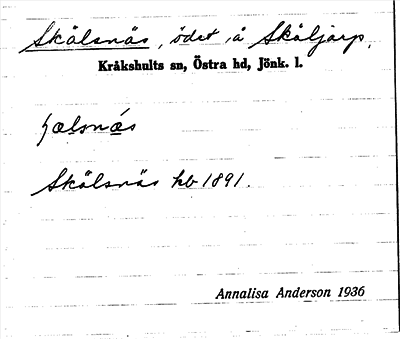 Skälsnäs, ödet å Skäljarp,
Kråkshults sn, Östra hd, Jönk. l.
Skälsnäs hb 1891.
Annalisa Anderson 1936